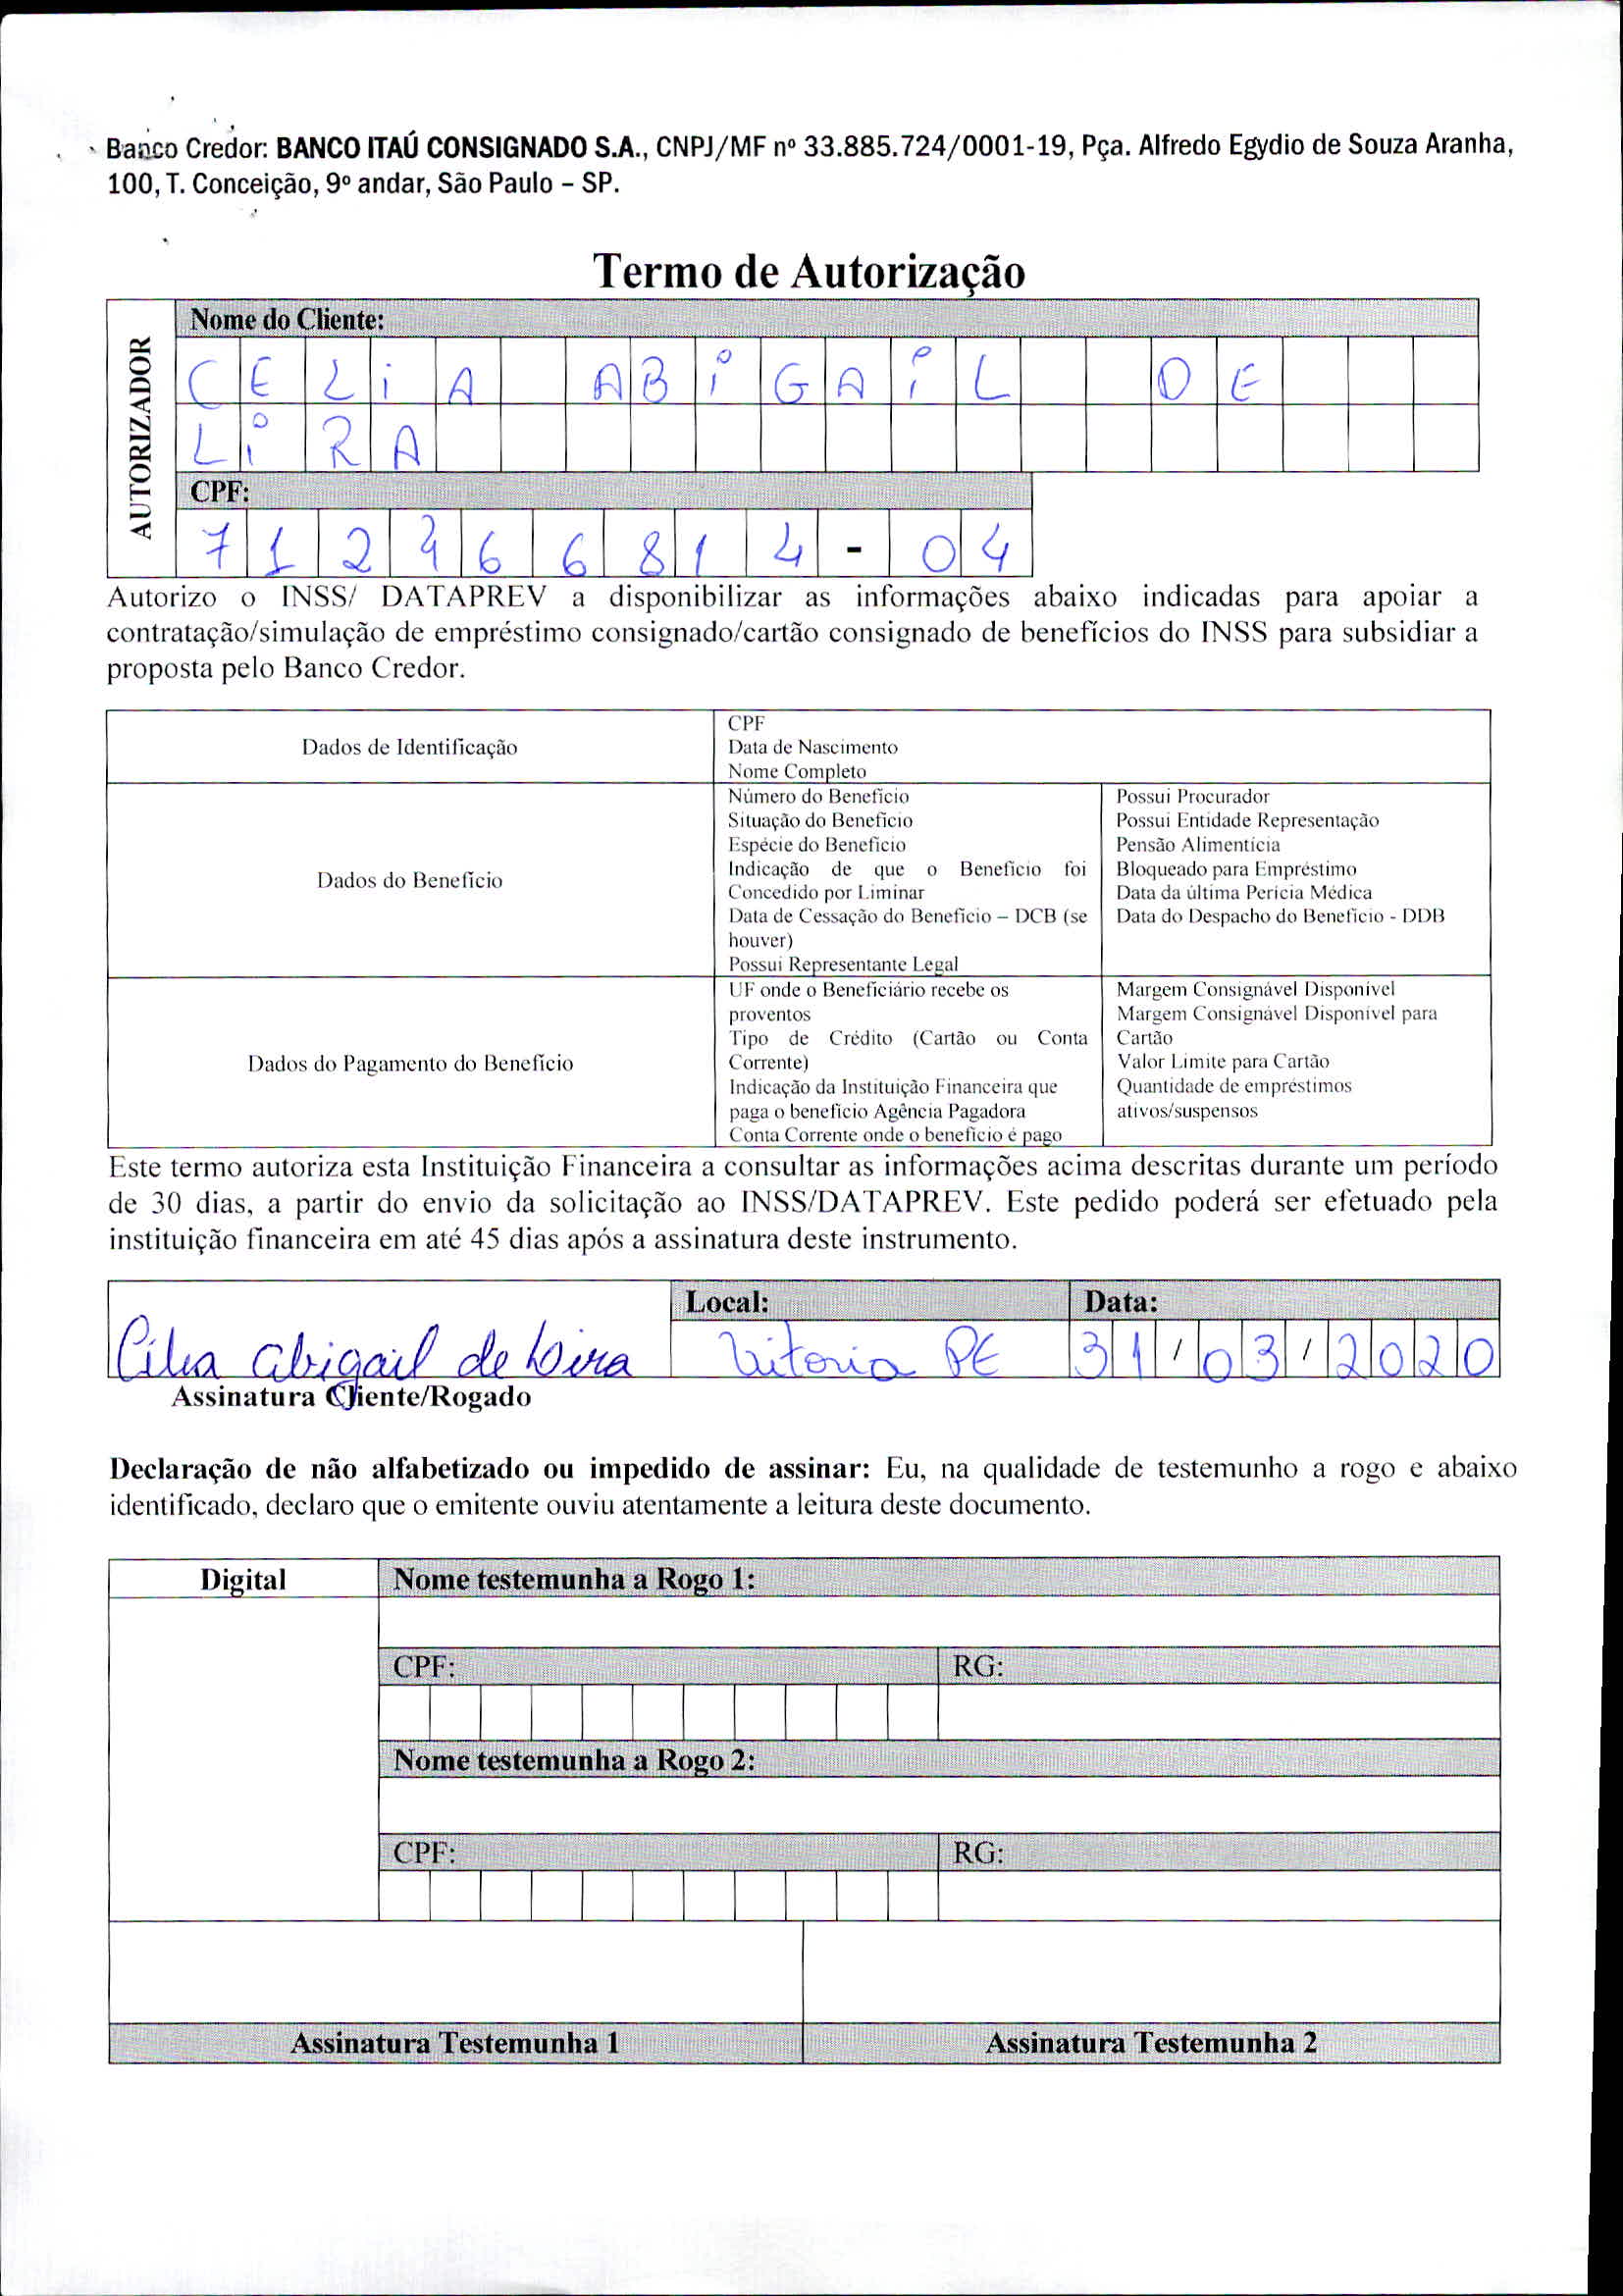 Banco Credor: BANCO ITAÚ CONSIGNADO S.A., CNPJ/MF nº 33.885.724/0001-19, Pça. Alfredo Egydio de Souza Aranha,
100, T. Conceição, 9º andar, São Paulo – SP.
Termo de Autorização
AUTORIZADOR
Nome do Cliente:
CELIA ABIGAIL DE
LIRA
CPF:
712466814-04
Autorizo o INSS/ DATAPREV a disponibilizar as informações abaixo indicadas para apoiar a
contratação/simulação de empréstimo consignado/cartão consignado de benefícios do INSS para subsidiar a
proposta pelo Banco Credor.
Dados de Identificação
CPF
Data de Nascimento
Nome Completo
Dados do Benefício
Número do Benefício
Situação do Benefício
Espécie do Benefício
Indicação de que o Benefício foi
Concedido por Liminar
Data de Cessação do Benefício – DCB (se
houver)
Possui Representante Legal
Possui Procurador
Possui Entidade Representação
Pensão Alimentícia
Bloqueado para Empréstimo
Data da última Perícia Médica
Data do Despacho do Benefício - DDB
Dados do Pagamento do Benefício
UF onde o Beneficiário recebe os
proventos
Tipo de Crédito (Cartão ou Conta
Corrente)
Indicação da Instituição Financeira que
paga o benefício Agência Pagadora
Conta Corrente onde o benefício é pago
Margem Consignável Disponível
Margem Consignável Disponível para
Cartão
Valor Limite para Cartão
Quantidade de empréstimos
ativos/suspensos
Este termo autoriza esta Instituição Financeira a consultar as informações acima descritas durante um período
de 30 dias, a partir do envio da solicitação ao INSS/DATAPREV. Este pedido poderá ser efetuado pela
instituição financeira em até 45 dias após a assinatura deste instrumento.
Local: Data:
Célia Abigail de Lira Vitoria PE 31/03/2020
Assinatura Cliente/Rogado
Declaração de não alfabetizado ou impedido de assinar: Eu, na qualidade de testemunho a rogo e abaixo
identificado, declaro que o emitente ouviu atentamente a leitura deste documento.
Digital
Nome testemunha a Rogo 1:
CPF: RG:
Nome testemunha a Rogo 2:
CPF: RG:
Assinatura Testemunha 1 Assinatura Testemunha 2